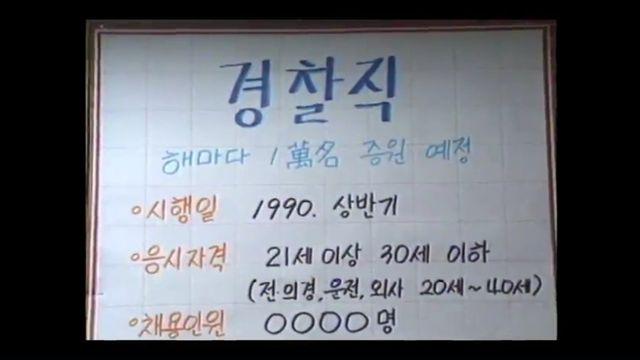 경찰직
해마다 1萬名 증원 예정
시행일 1990. 상반기
응시자격 21세 이상 30세 이하
(전·의경, 운전, 외사 20세~40세)
채용인원 0000명